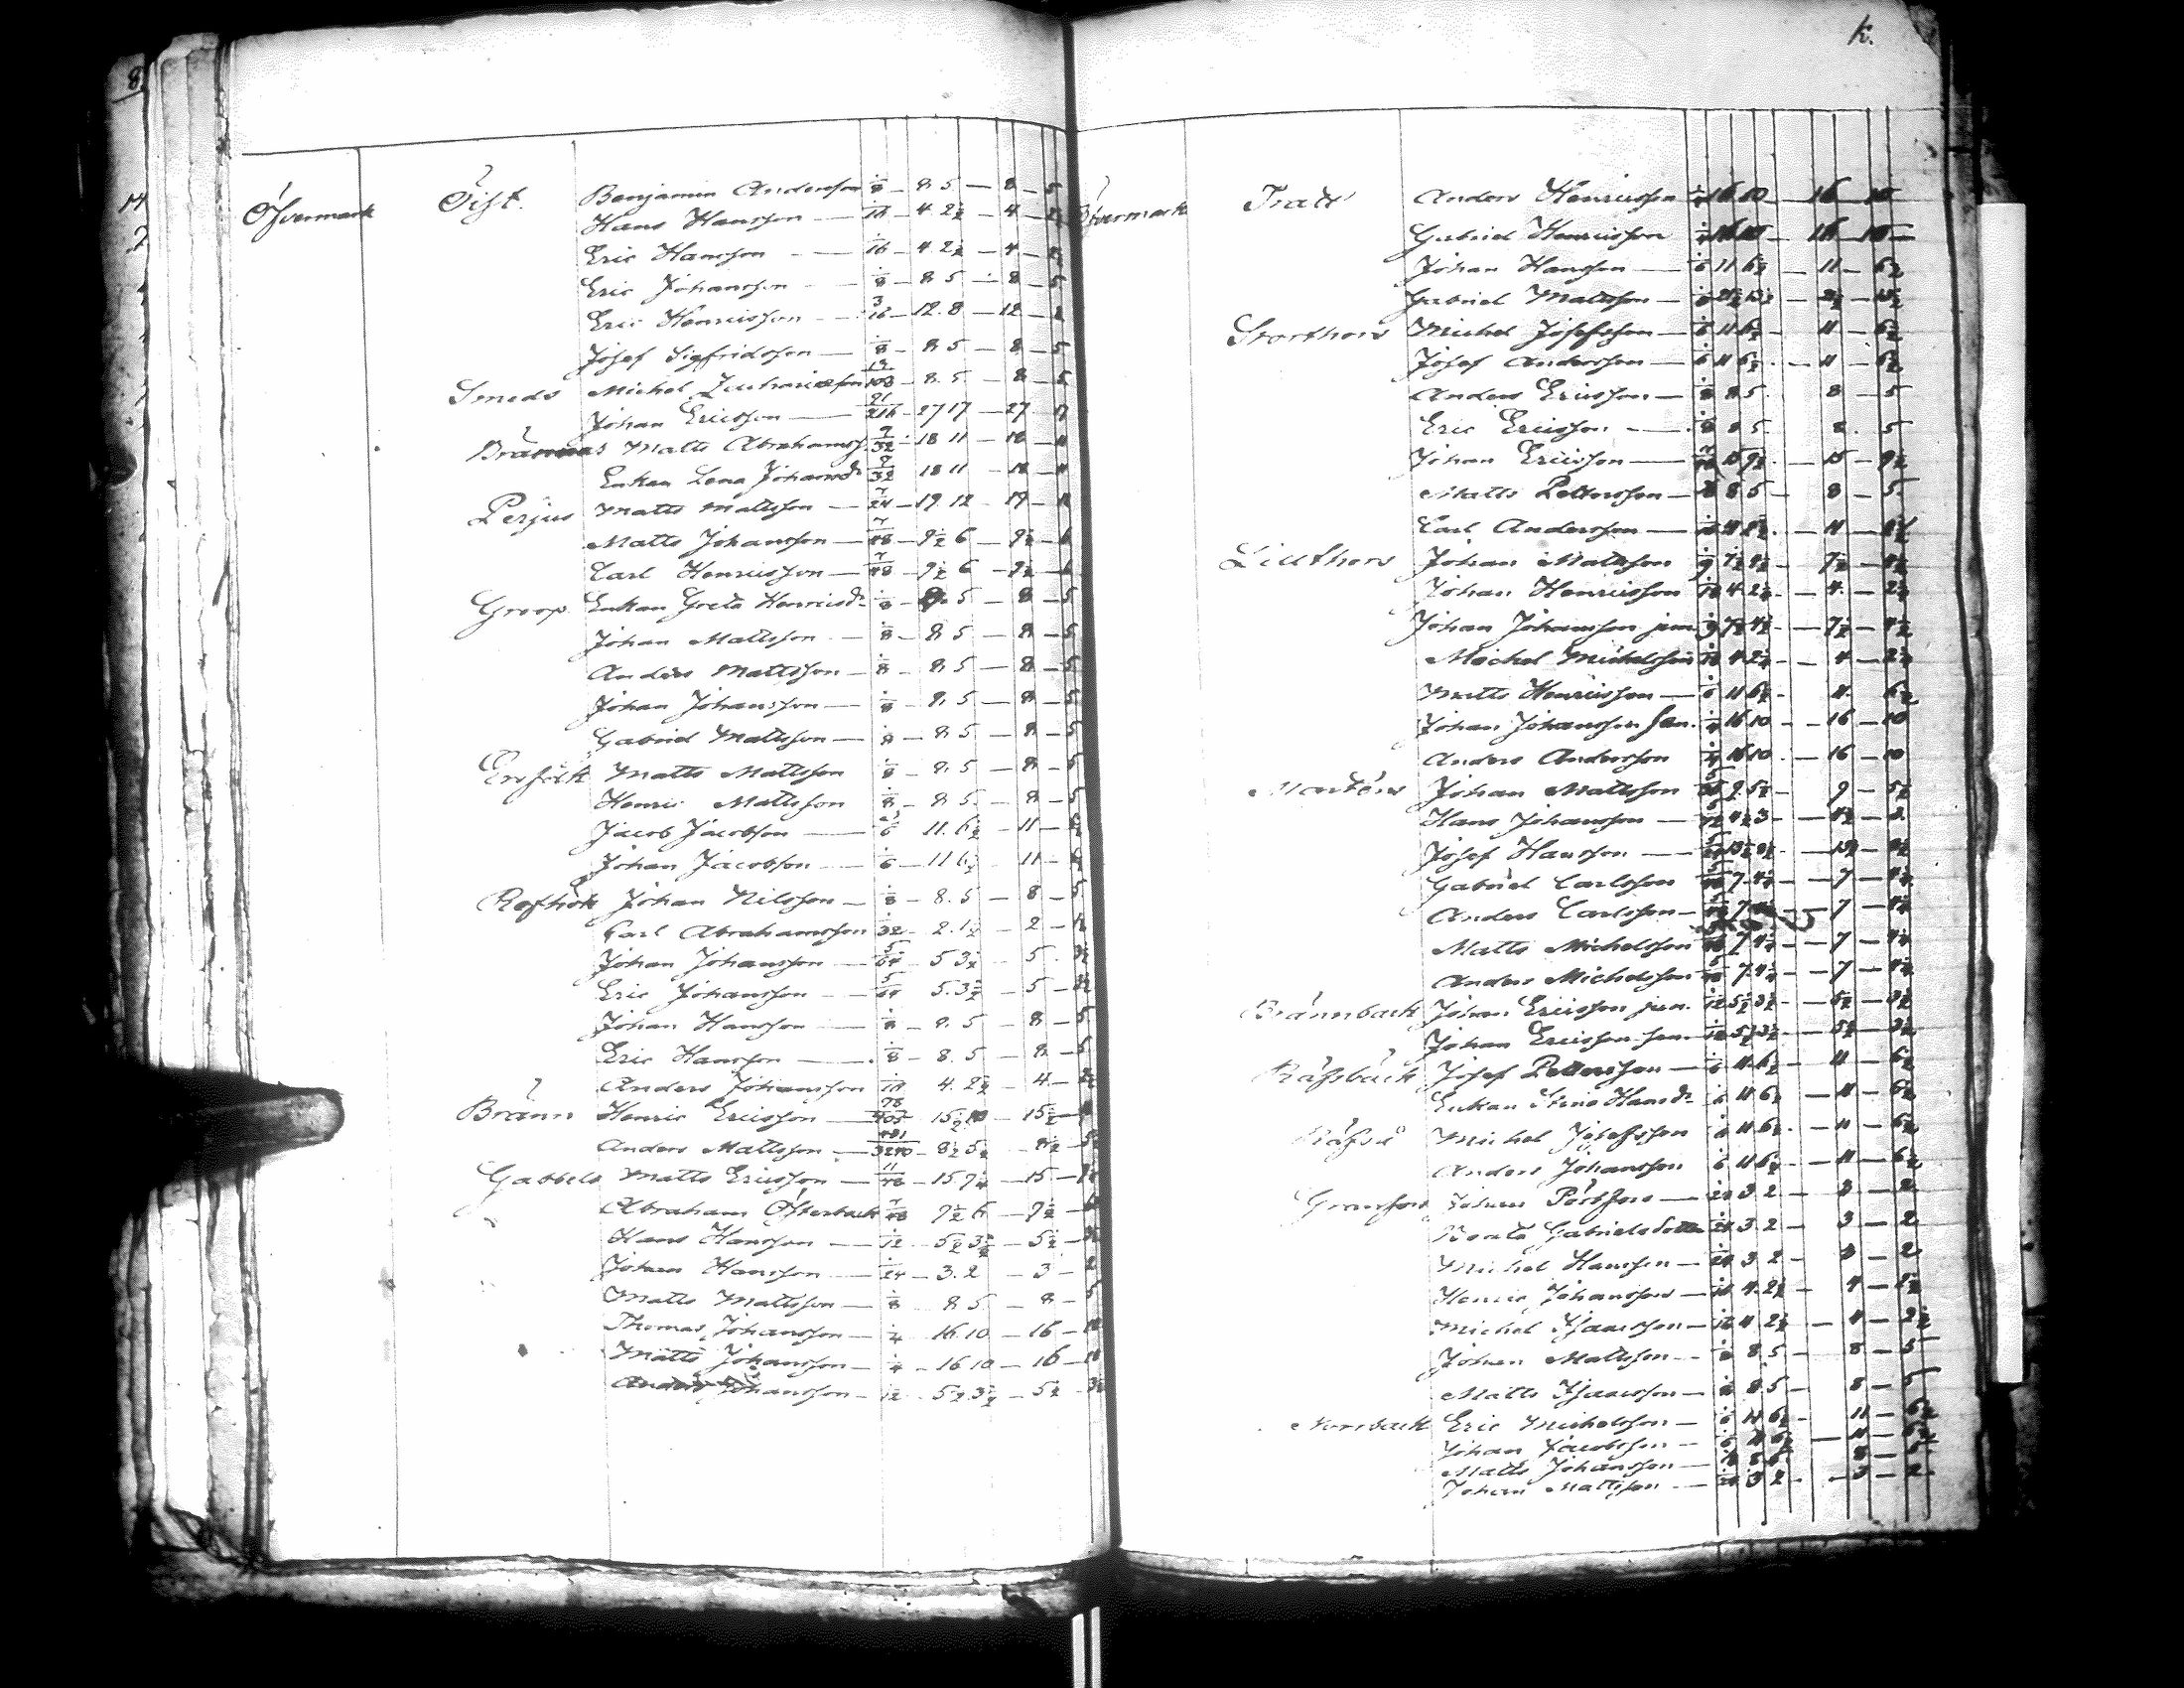 8
k.
Öfvermark Öist. Benjamin Andersson 1/8 - 8. 5 - 8 - 5
Hans Hansson - 1/16 - 4. 2 1/2 - 4 - 2 1/2
Eric Hansson - 1/16 - 4. 2 1/2 - 4 -
Eric Johansson - 1/8 - 8. 5 - 8 - 5
Eric Henricsson - 3/16 - 12. 8 - 12 - 8
Josef Sigfridsson - 1/8 - 8. 5 - 8 - 5
Smeds Michel Zachariæsson 8. 5 - 8 - 5
Johan Ericsson - 91/216 - 27 17 - 27 - 17
Brännas Matts Abrahamss. 9/32 - 18 11 - 18 - 11
Enkan Lena Johansd:r 9/32 18 11 - 18 - 11
Perjus Matts Mattsson - 7/24 - 19. 12 - 19 - 12
Matts Johansson - 7/48 - 9 1/2 6 - 9 1/2 - 6
Carl Henricsson - 7/48 - 9 1/2 6 - 9 1/2 - 6
Groop Enkan Greta Henricsd:r 1/8 - 8. 5 - 8 - 5
Johan Mattsson - 1/8 - 8. 5 - 8 - 5
Anders Mattsson - 1/8 - 8. 5 - 8 - 5
Johan Johansson - 1/8 - 8. 5 - 8 - 5
Gabriel Mattsson - 1/8 - 8. 5 - 8 - 5
Matts Mattsson 1/8 - 8. 5 - 8 - 5
Henric Mattsson 1/8 - 8. 5 - 8 - 5
Jacob Jacobson - 1/6 11. 6 1/2 - 11 -
Johan Jacobson - 1/6 - 11 6 1/2 - 11 -
Johan Nilsson - 1/8 - 8. 5 - 8 - 5
Carl Abrahamsson 1/32 - 2. 1 1/2 - 2 -
Johan Johansson - 5/64 - 5 3 1/2 - 5. 3 1/2
Eric Johansson - 5/64 5. 3 1/2 - 5 - 3 1/2
Johan Hansson - 1/8 - 8. 5 - 8 - 5
Eric Hansson - 1/8 - 8. 5 - 8 - 5
Anders Johansson 1/16 4. 2 1/2 - 4 - 2 1/2
Bränn Henric Ericsson - 15 1/2 10 - 15 1/2 -
Anders Mattsson - 8 1/2 5 1/2 - 8 1/2 -
Gabbels Matts Ericsson - 11/48 - 15 9 1/2 - 15 -
Abraham Österback 7/48 9 1/2 6 - 9 1/2 - 6
Hans Hansson - 1/12 - 5 1/2 3 1/2 - 5 1/2 -
Johan Hansson - 1/24 - 3. 2 - 3 - 2
Matts Mattsson - 1/8 8 5 - 8 - 5
Thomas Johansson - 1/4 16. 10 - 16 - 10
Matts Johansson - 1/4 - 16 10 - 16 - 10
Anders Johansson - 1/12 - 5 1/2 3 1/2 - 5 1/2 - 3 1/2
Öfvermark Anders Henricsson 1/4 16 10 16 - 10
Gabriel Henricsson 1/4 16 10 - 16 - 10
Johan Hansson - 1/6 11 6 1/2 - 11 - 6 1/2
Gabriel Mattsson -
Storthors Michel Josefsson - 1/6 11 6 1/2 - 11 - 6 1/2
Josef Andersson - 1/6 11 6 1/2 - 11 - 6 1/2
Anders Ericsson - 1/8 8 5 8 - 5
Eric Ericsson - 1/8 8 5 8. 5
Johan Ericsson - 15 9 1/2 - 15 - 9 1/2
Matts Pettersson - 1/8 8 5 - 8 - 5
Carl Andersson - 1/16 4 2 1/2 - 4 - 2 1/2
Lillthors Johan Mattsson 1/9 7 1/2 4 1/2 - 7 1/2 - 4 1/2
Johan Henricsson 1/16 4 2 1/2 - 4 - 2 1/2
Johan Johansson jun. 1/9 7 1/2 4 1/2 - 7 1/2 - 4 1/2
Michel Michelsson 1/16 4 2 1/2 - 4 - 2 1/2
Matts Henricsson - 1/6 11 6 1/2 - 11 6 1/2
Johan Johansson Sen. 1/4 16 10 - 16 - 10
Anders Andersson 1/4 16 10 - 16 - 10
Mårtens Johan Mattsson 9. 5 1/2 - 9 - 5 1/2
Hans Johansson - 4 1/2 3 - 4 1/2 - 3
Josef Hansson - 13 1/2 8 1/2 - 13 1/2 - 8 1/2
Gabriel Carlsson 7. 4 1/2 - 7 - 4 1/2
Anders Carlsson - 7 - 4 1/2
Matts Michelsson 7 4 1/2 - 7 - 4 1/2
Anders Michelsson 7. 4 1/2 - 7 - 4 1/2
Brännback Johan Ericsson jun. 1/12 5 1/2 3 1/2 - 5 1/2 - 3 1/2
Johan Ericsson sen. 1/12 5 1/2 3 1/2 - 5 1/2 - 3 1/2
Råssback Josef Pettersson - 1/6 11 6 1/2 - 11 - 6 1/2
Enkan Stina Hansd:r 1/6 11 6 1/2 - 11 - 6 1/2
Michel Josefsson 1/6 11 6 1/2 - 11 - 6 1/2
Anders Johansson 1/6 11 6 1/2 - 11 - 6 1/2
Johan - 1/24 3 2 - 3 - 2
Beata Gabrielsdotter 1/24 3. 2 - 3 - 2
Michel Hansson - 1/24 3 2 - 3 - 2
Henric Johansson - 1/16 4. 2 1/2 - 4 - 2 1/2
Michel Isacsson - 1/16 4 2 1/2 - 4 - 2 1/2
Johan Mattsson - 1/8 8 5 - 8 - 5
Matts Isacsson - 1/8 8 5 - 8 - 5
Norrback Eric Michelsson - 1/6 11 6 1/2 - 11 - 6 1/2
Johan Jacobsson - 1/6 11 6 1/2 - 11 - 6 1/2
Matts Johansson - 1/8 8 5 8 - 5
Johan Mattsson - 1/24 3 2 - 3 - 2